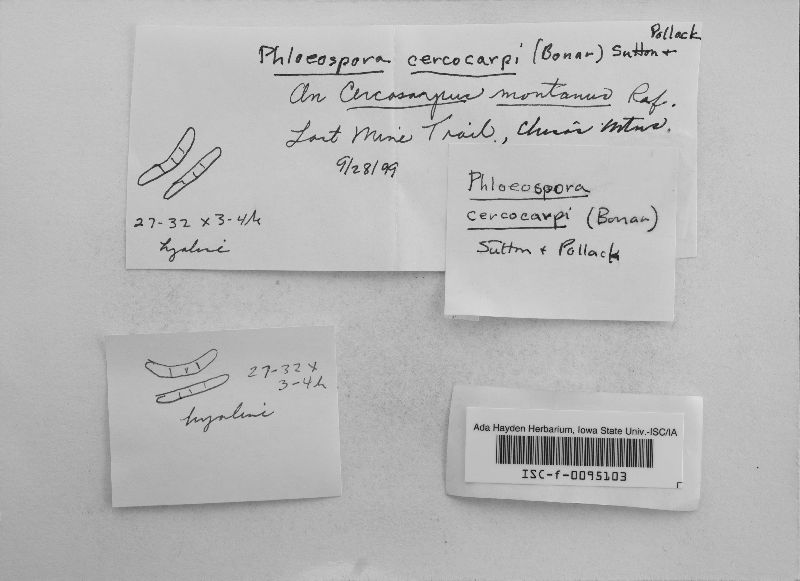 Pollack
Phloeospora cercocarpi (Bonar) Sutton +
On Cercocarpus montanus Raf.
Lost Mine Trail., Chisos Mtns.
9/28/99
27-32 x 3-4µ
hyaline
Phloeospora
cercocarpi (Bonar)
Sutton + Pollack
27-32 x
3-4µ
hyaline
Ada Hayden Herbarium, Iowa State Univ.-ISC/IA
ISC-f-0095103